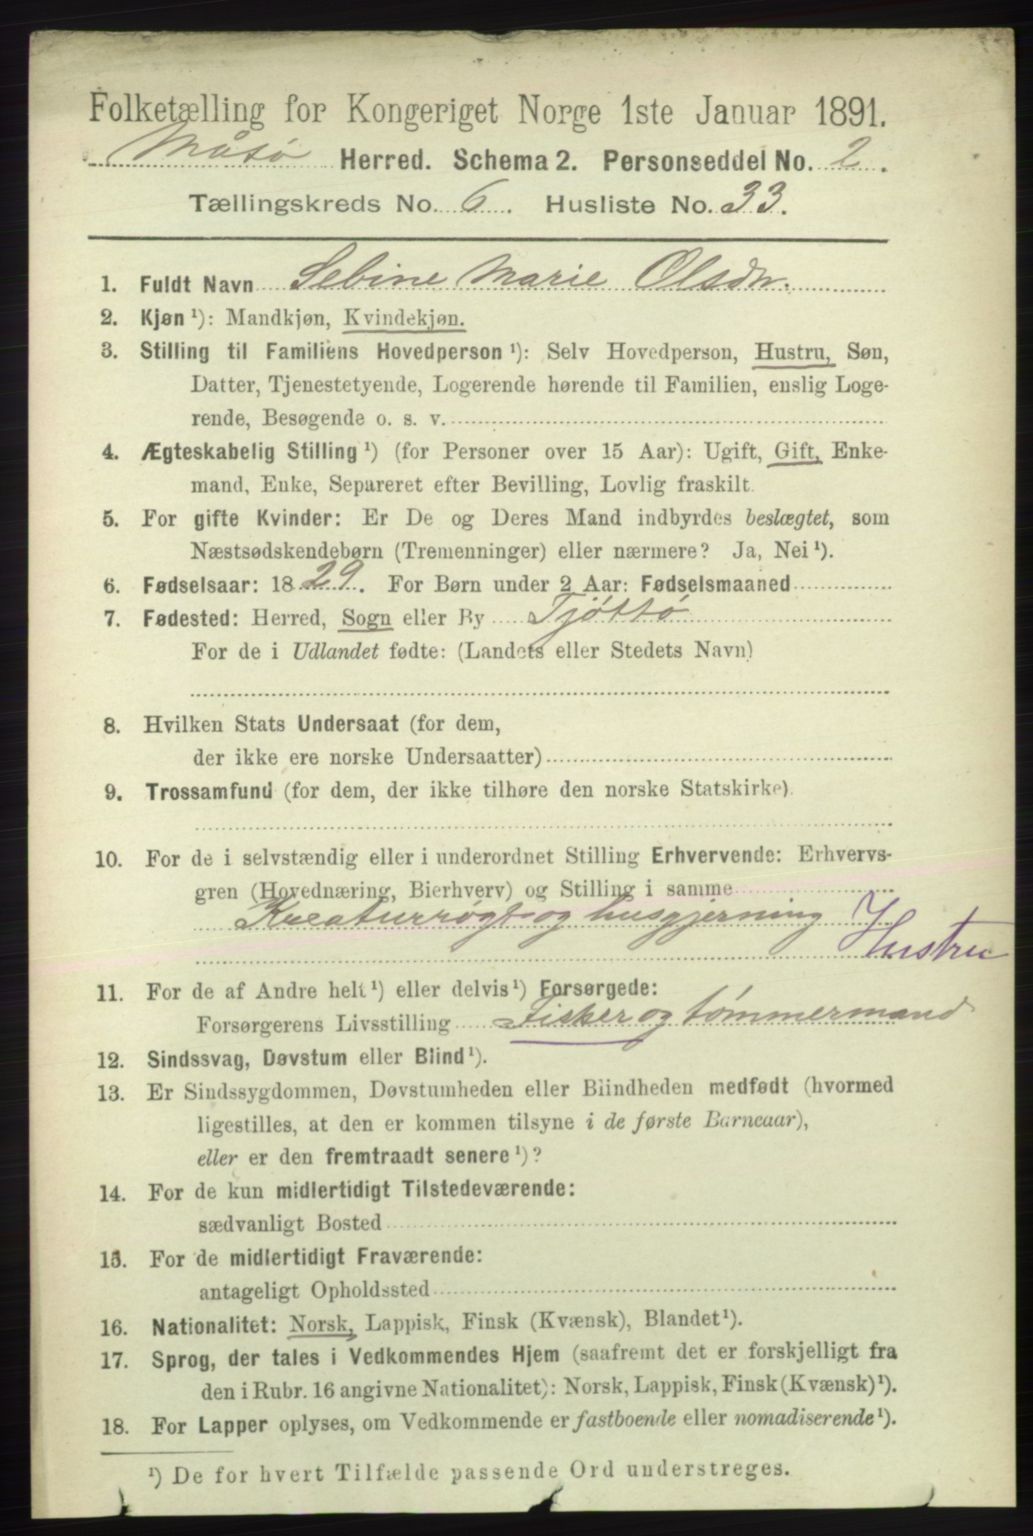 Folketælling for Kongeriget Norge 1ste Januar 1891.
Måsø Herred. Schema 2. Personseddel No. 2.
Tællingskreds No. 6. Husliste No. 33.
1. Fuldt Navn Sebine Marie Olsdtr.
2. Kjøn ¹): Mandkjøn, Kvindekjøn.
3. Stilling til Familiens Hovedperson ¹): Selv Hovedperson, Hustru, Søn,
Datter, Tjenestetyende, Logerende hørende til Familien, enslig Loge-
rende, Besøgende o. s. v.
4. Ægteskabelig Stilling ¹) (for Personer over 15 Aar): Ugift, Gift, Enke-
mand, Enke, Separeret efter Bevilling, Lovlig fraskilt.
5. For gifte Kvinder: Er De og Deres Mand indbyrdes beslægtet, som
Næstsødskendebørn (Tremenninger) eller nærmere? Ja, Nei ¹).
6. Fødselsaar: 1829. For Børn under 2 Aar: Fødselsmaaned
7. Fødested: Herred, Sogn eller By Tjøttø
For de i Udlandet fødte: (Landets eller Stedets Navn)
8. Hvilken Stats Undersaat (for dem,
der ikke ere norske Undersaatter)
9. Trossamfund (for dem, der ikke tilhøre den norske Statskirke)
10. For de i selvstændig eller i underordnet Stilling Erhvervende: Erhvervs-
gren (Hovednæring, Bierhverv) og Stilling i samme
Kreaturrøgt og husgjerning Hustru
11. For de af Andre helt ¹) eller delvis ¹) Forsørgede:
Forsørgerens Livsstilling Fisker og tømmermand
12. Sindssvag, Døvstum eller Blind ¹).
13. Er Sindssygdommen, Døvstumheden eller Blindheden medfødt (hvormed
ligestilles, at den er kommen tilsyne i de første Barneaar),
eller er den fremtraadt senere ¹)?
14. For de kun midlertidigt Tilstedeværende:
sædvanligt Bosted
15. For de midlertidigt Fraværende:
antageligt Opholdssted
16. Nationalitet: Norsk, Lappisk, Finsk (Kvænsk), Blandet ¹).
17. Sprog, der tales i Vedkommendes Hjem (saafremt det er forskjelligt fra
den i Rubr. 16 angivne Nationalitet): Norsk, Lappisk, Finsk (Kvænsk) ¹).
18. For Lapper oplyses, om Vedkommende er fastboende eller nomadiserende ¹).
¹) De for hvert Tilfælde passende Ord understreges.